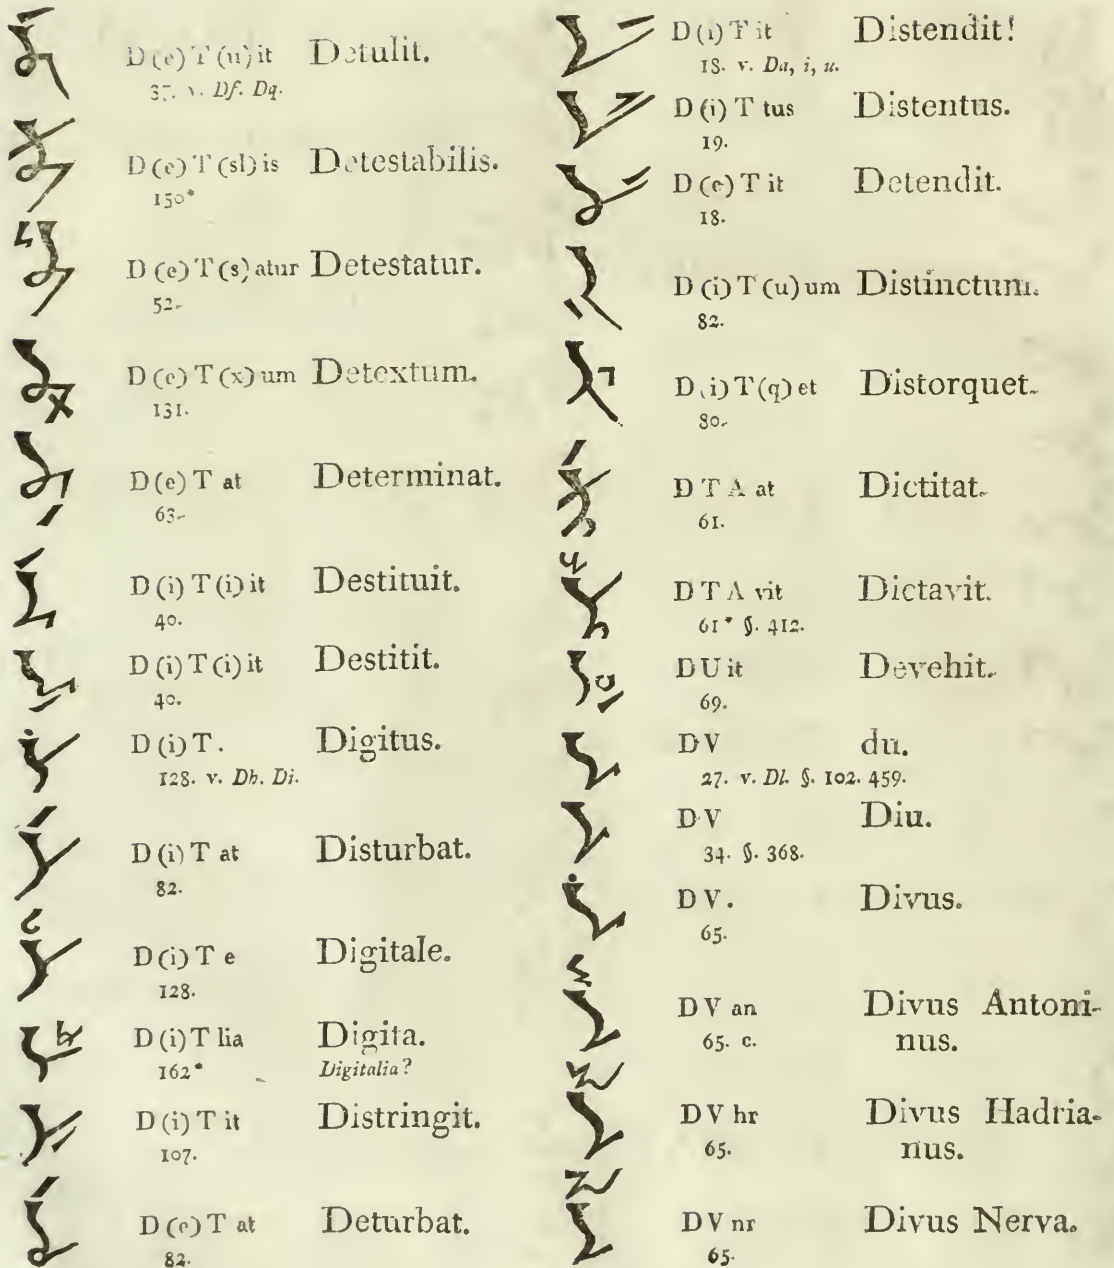 D (e) T (u) it Detulit.
37. v. Df. Dq.
D (e) T (sl) is Detestabilis.
150*
D (e) T (s) atur Detestatur.
52.
D (e) T (x) um Detextum.
131.
D (e) T at Determinat.
63.
D (i) T (i) it Destituit.
40.
D (i) T (i) it Destitit.
40.
D (i) T . Digitus.
128. v. Dh. Di.
D (i) T at Disturbat.
82.
D (i) T e Digitale.
128.
D (i) T lia Digita.
162* Digitalia?
D (i) T it Distringit.
107.
D (e) T at Deturbat.
82.
D (i) T it Distendit!
18. v. Da, i, u.
D (i) T tus Distentus.
19.
D (e) T it Detendit.
18.
D (i) T (u) um Distinctum.
82.
D (i) T (q) et Distorquet.
80.
D T A at Dictitat.
61.
D T A vit Dictavit.
61* §. 412.
D U it Devehit.
69.
D V du.
27. v. Dl. §. 102. 459.
D V Diu.
34. §. 368.
D V . Divus.
65.
D V an Divus Antoni-
65. c. nus.
D V hr Divus Hadria-
65. nus.
D V nr Divus Nerva.
65.